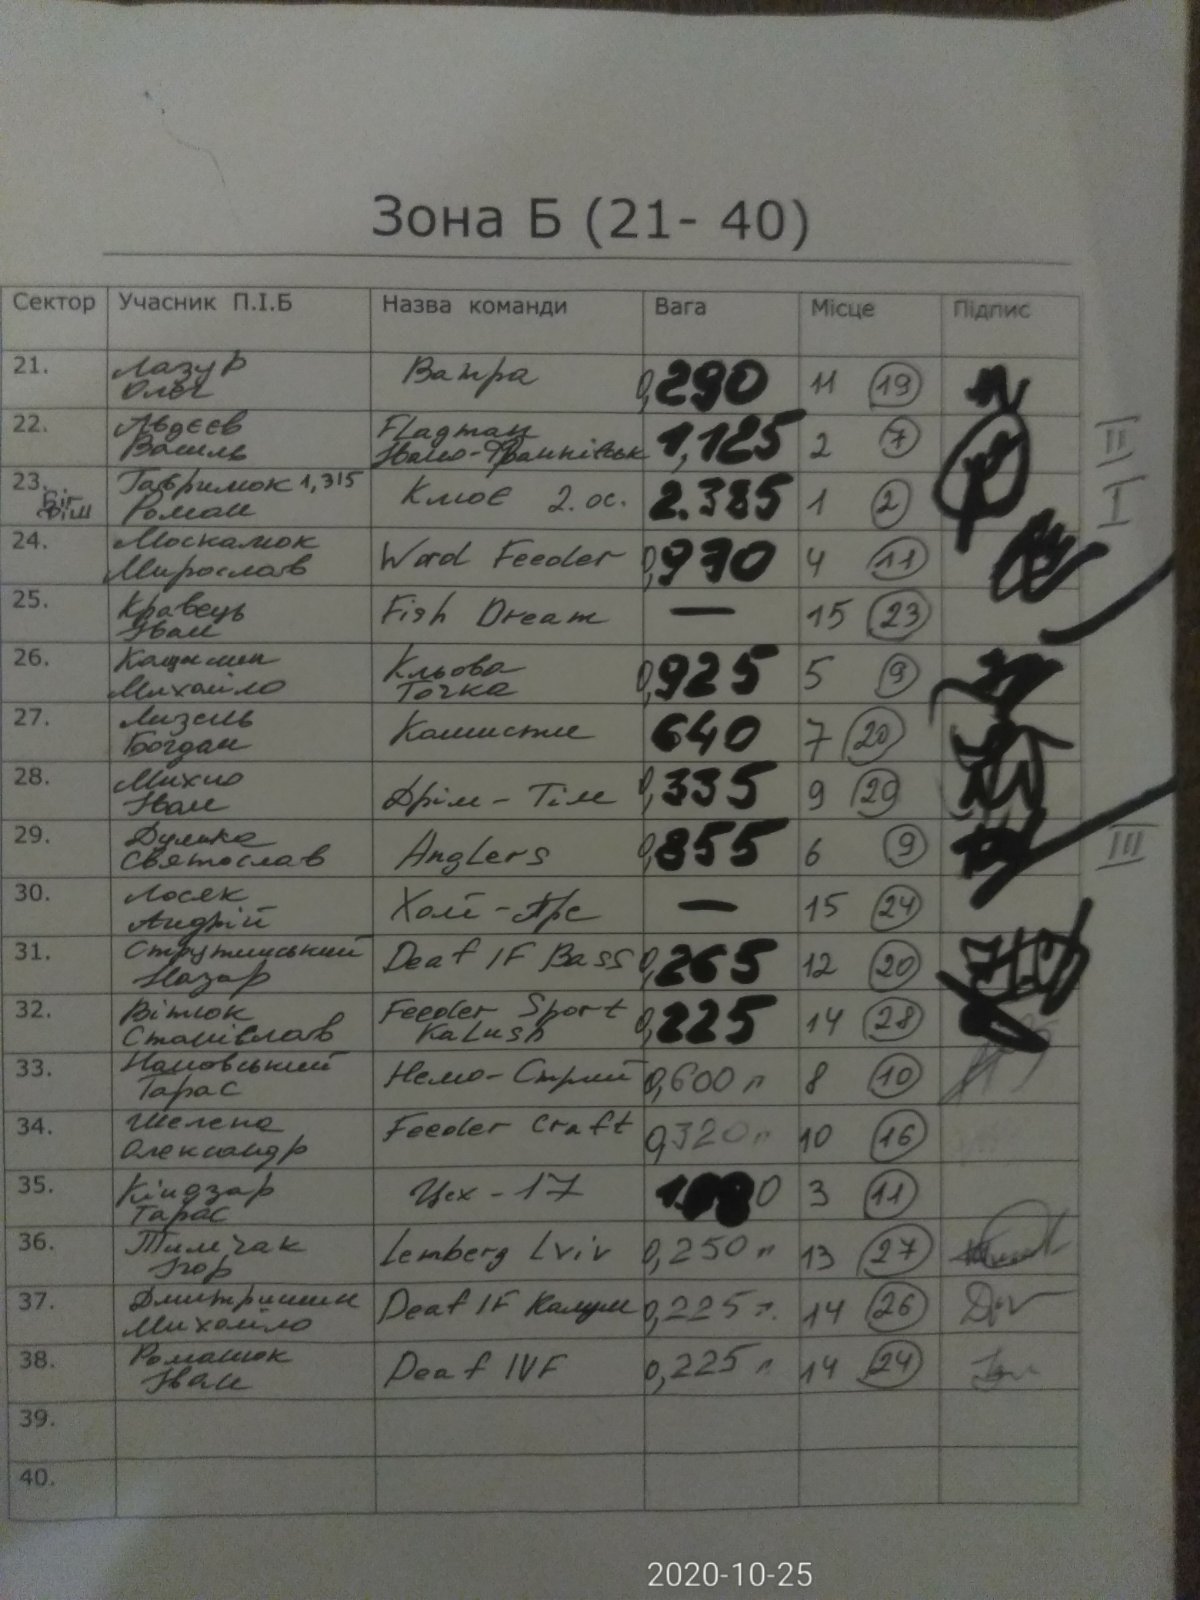 Зона Б (21- 40)
Сектор Учасник П.І.Б Назва команди Вага Місце Підпис
21. Лазур Олег Ватра 0,290 11 19
22. Авдєєв Василь Flagman Івано-Франківськ 1,125 2 7 II
23. Гавримюк 1,315 Роман Клює 2.ос. 2.385 1 2 I
24. Москалюк Мирослав Word Feeder 0,970 4 11
25. Кравець Іван Fish Dream — 15 23
26. Михайло Кльова Точка 0,925 5 9
27. Лизель Богдан 640 7 20
28. Михно Іван Дрім-Тім 0,335 9 20
29. Думка Святослав Anglers 0,855 6 9 III
30. Лосек Андрій — 15 24
31. Струтинський Назар Deaf IF Bass 0,265 12 20
32. Вітюк Станіслав Feeder Sport Kalush 0,225 14 28
33. Тарас Немо-Стрий 0,600 8 10
34. Шелепа Олександр Feeder Craft 0,320 10 16
35. Кіндзар Тарас Цех-17 3 11
36. Тимчак Ігор Lemberg Lviv 0,250 13 27
37. Дмитришин Михайло Deaf IF Калуш 0,225 14 26
38. Романюк Іван Deaf IVF 0,225 14 24
39.
40.
2020-10-25